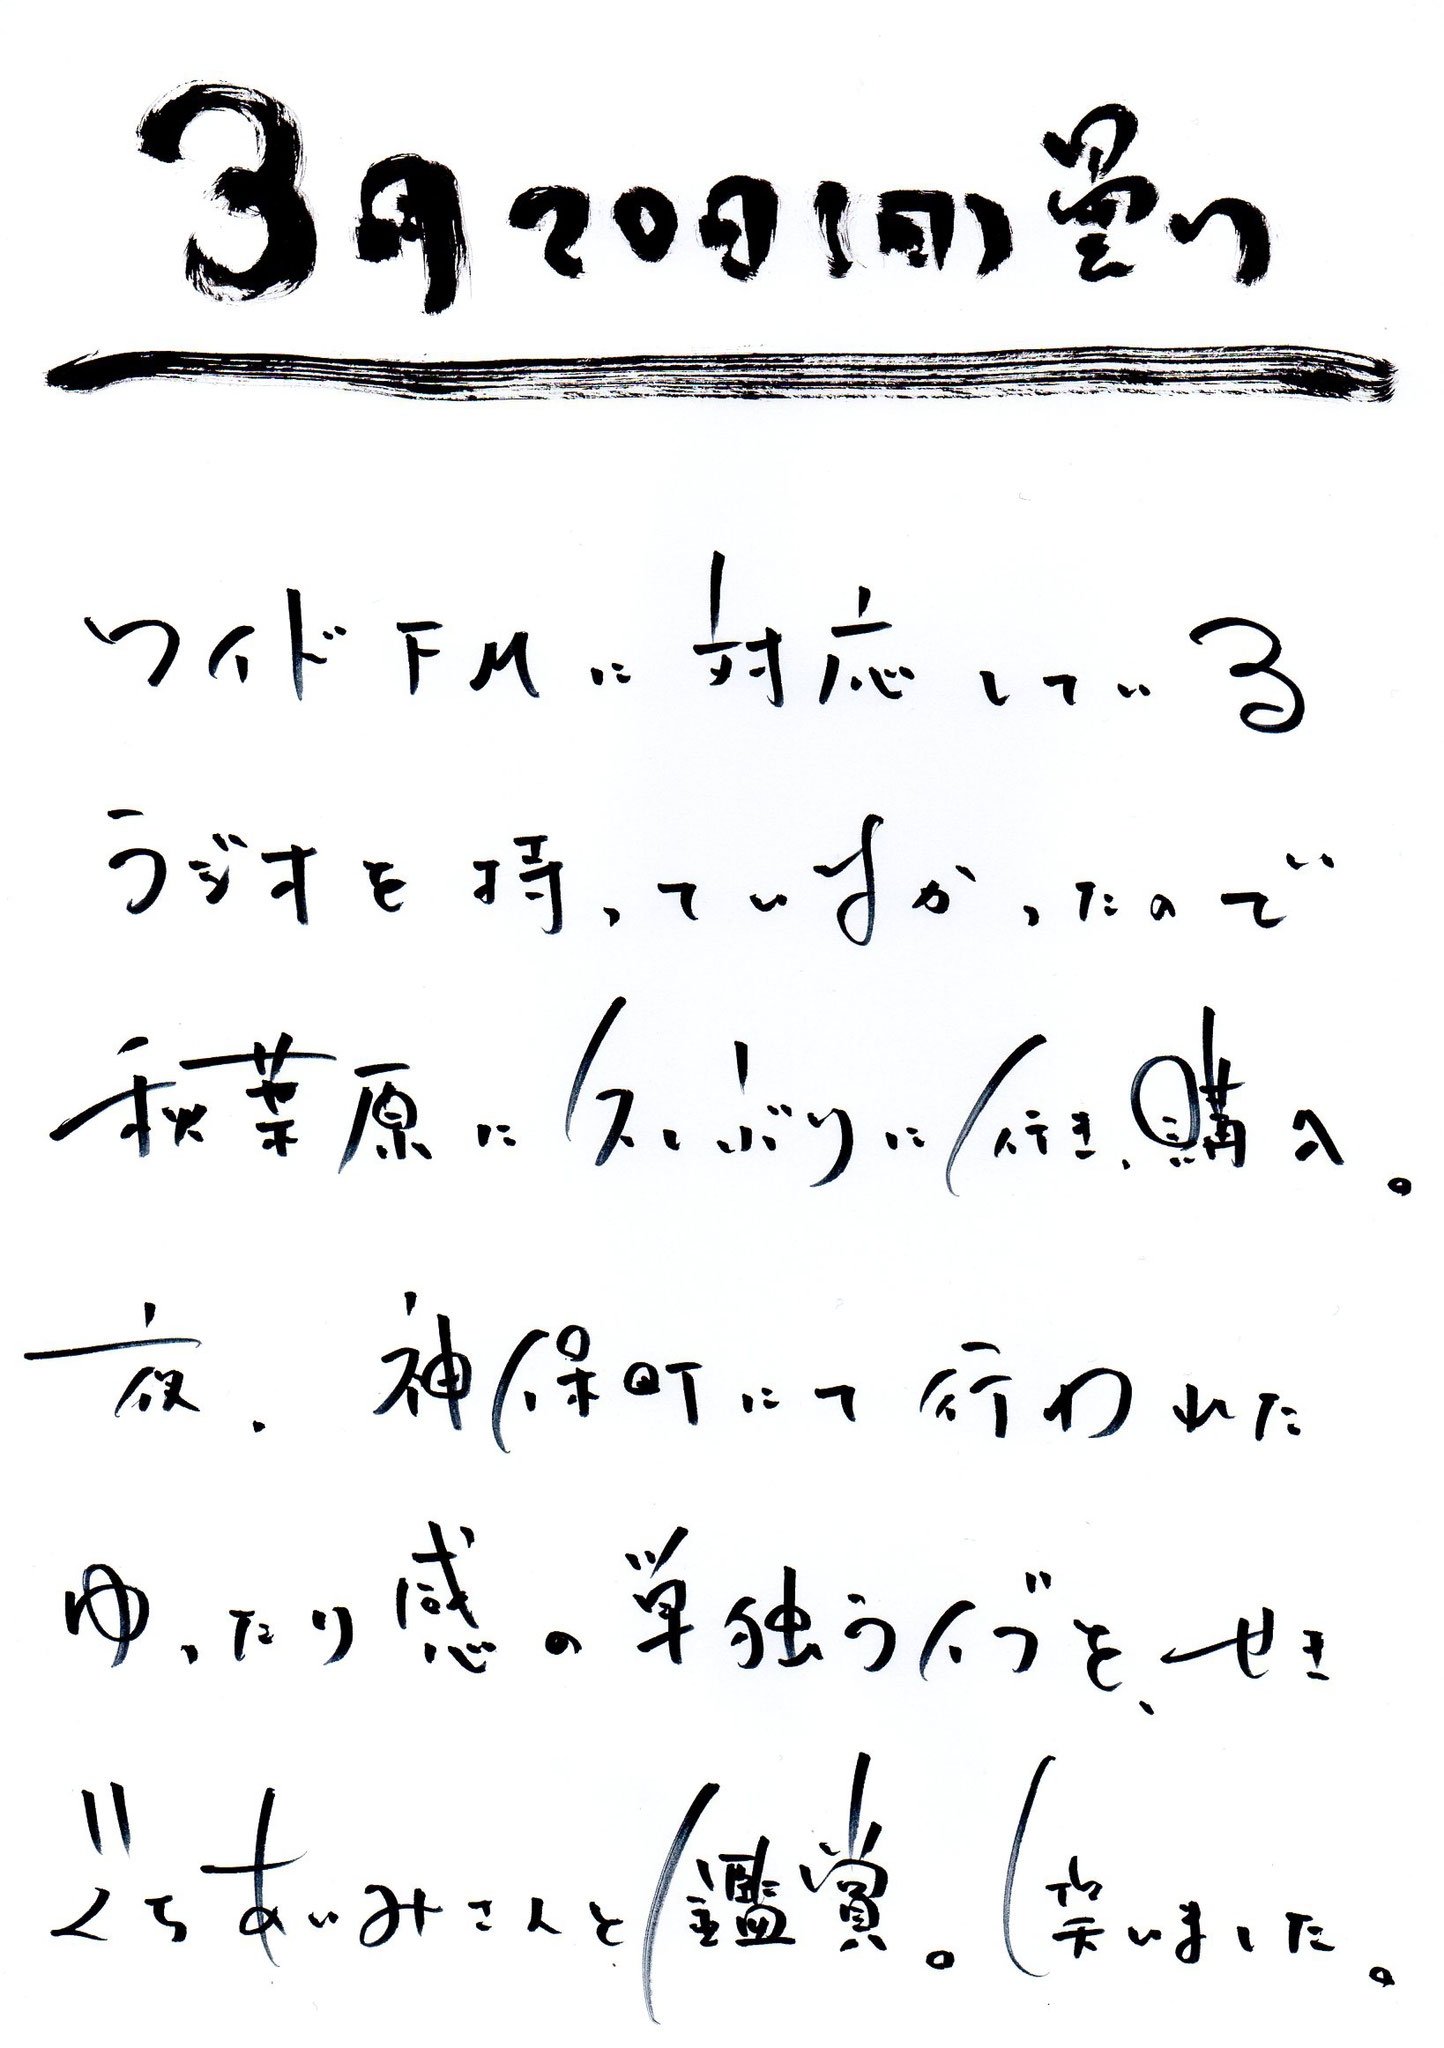 3月20日(月)曇り
ワイドFMに対応している
ラジオを持っていなかったので
秋葉原に久しぶりに行き、購入。
夜、神保町にて行われた
ゆったり感の単独ライブを、せき
ぐちあいみさんと鑑賞。笑いました。